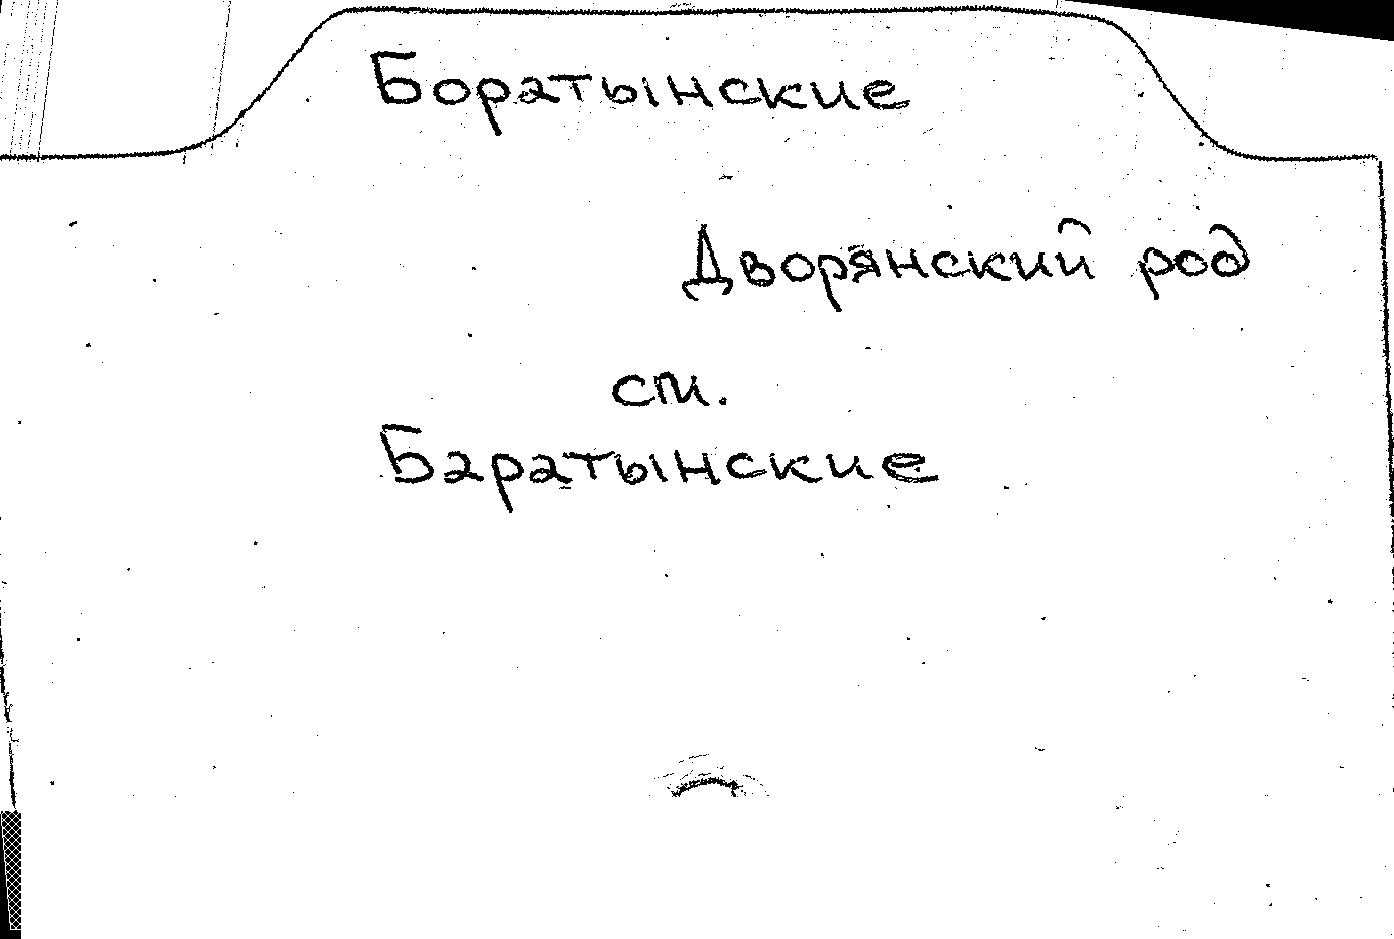 Боратынские
Дворянский род
см.
Баратынские